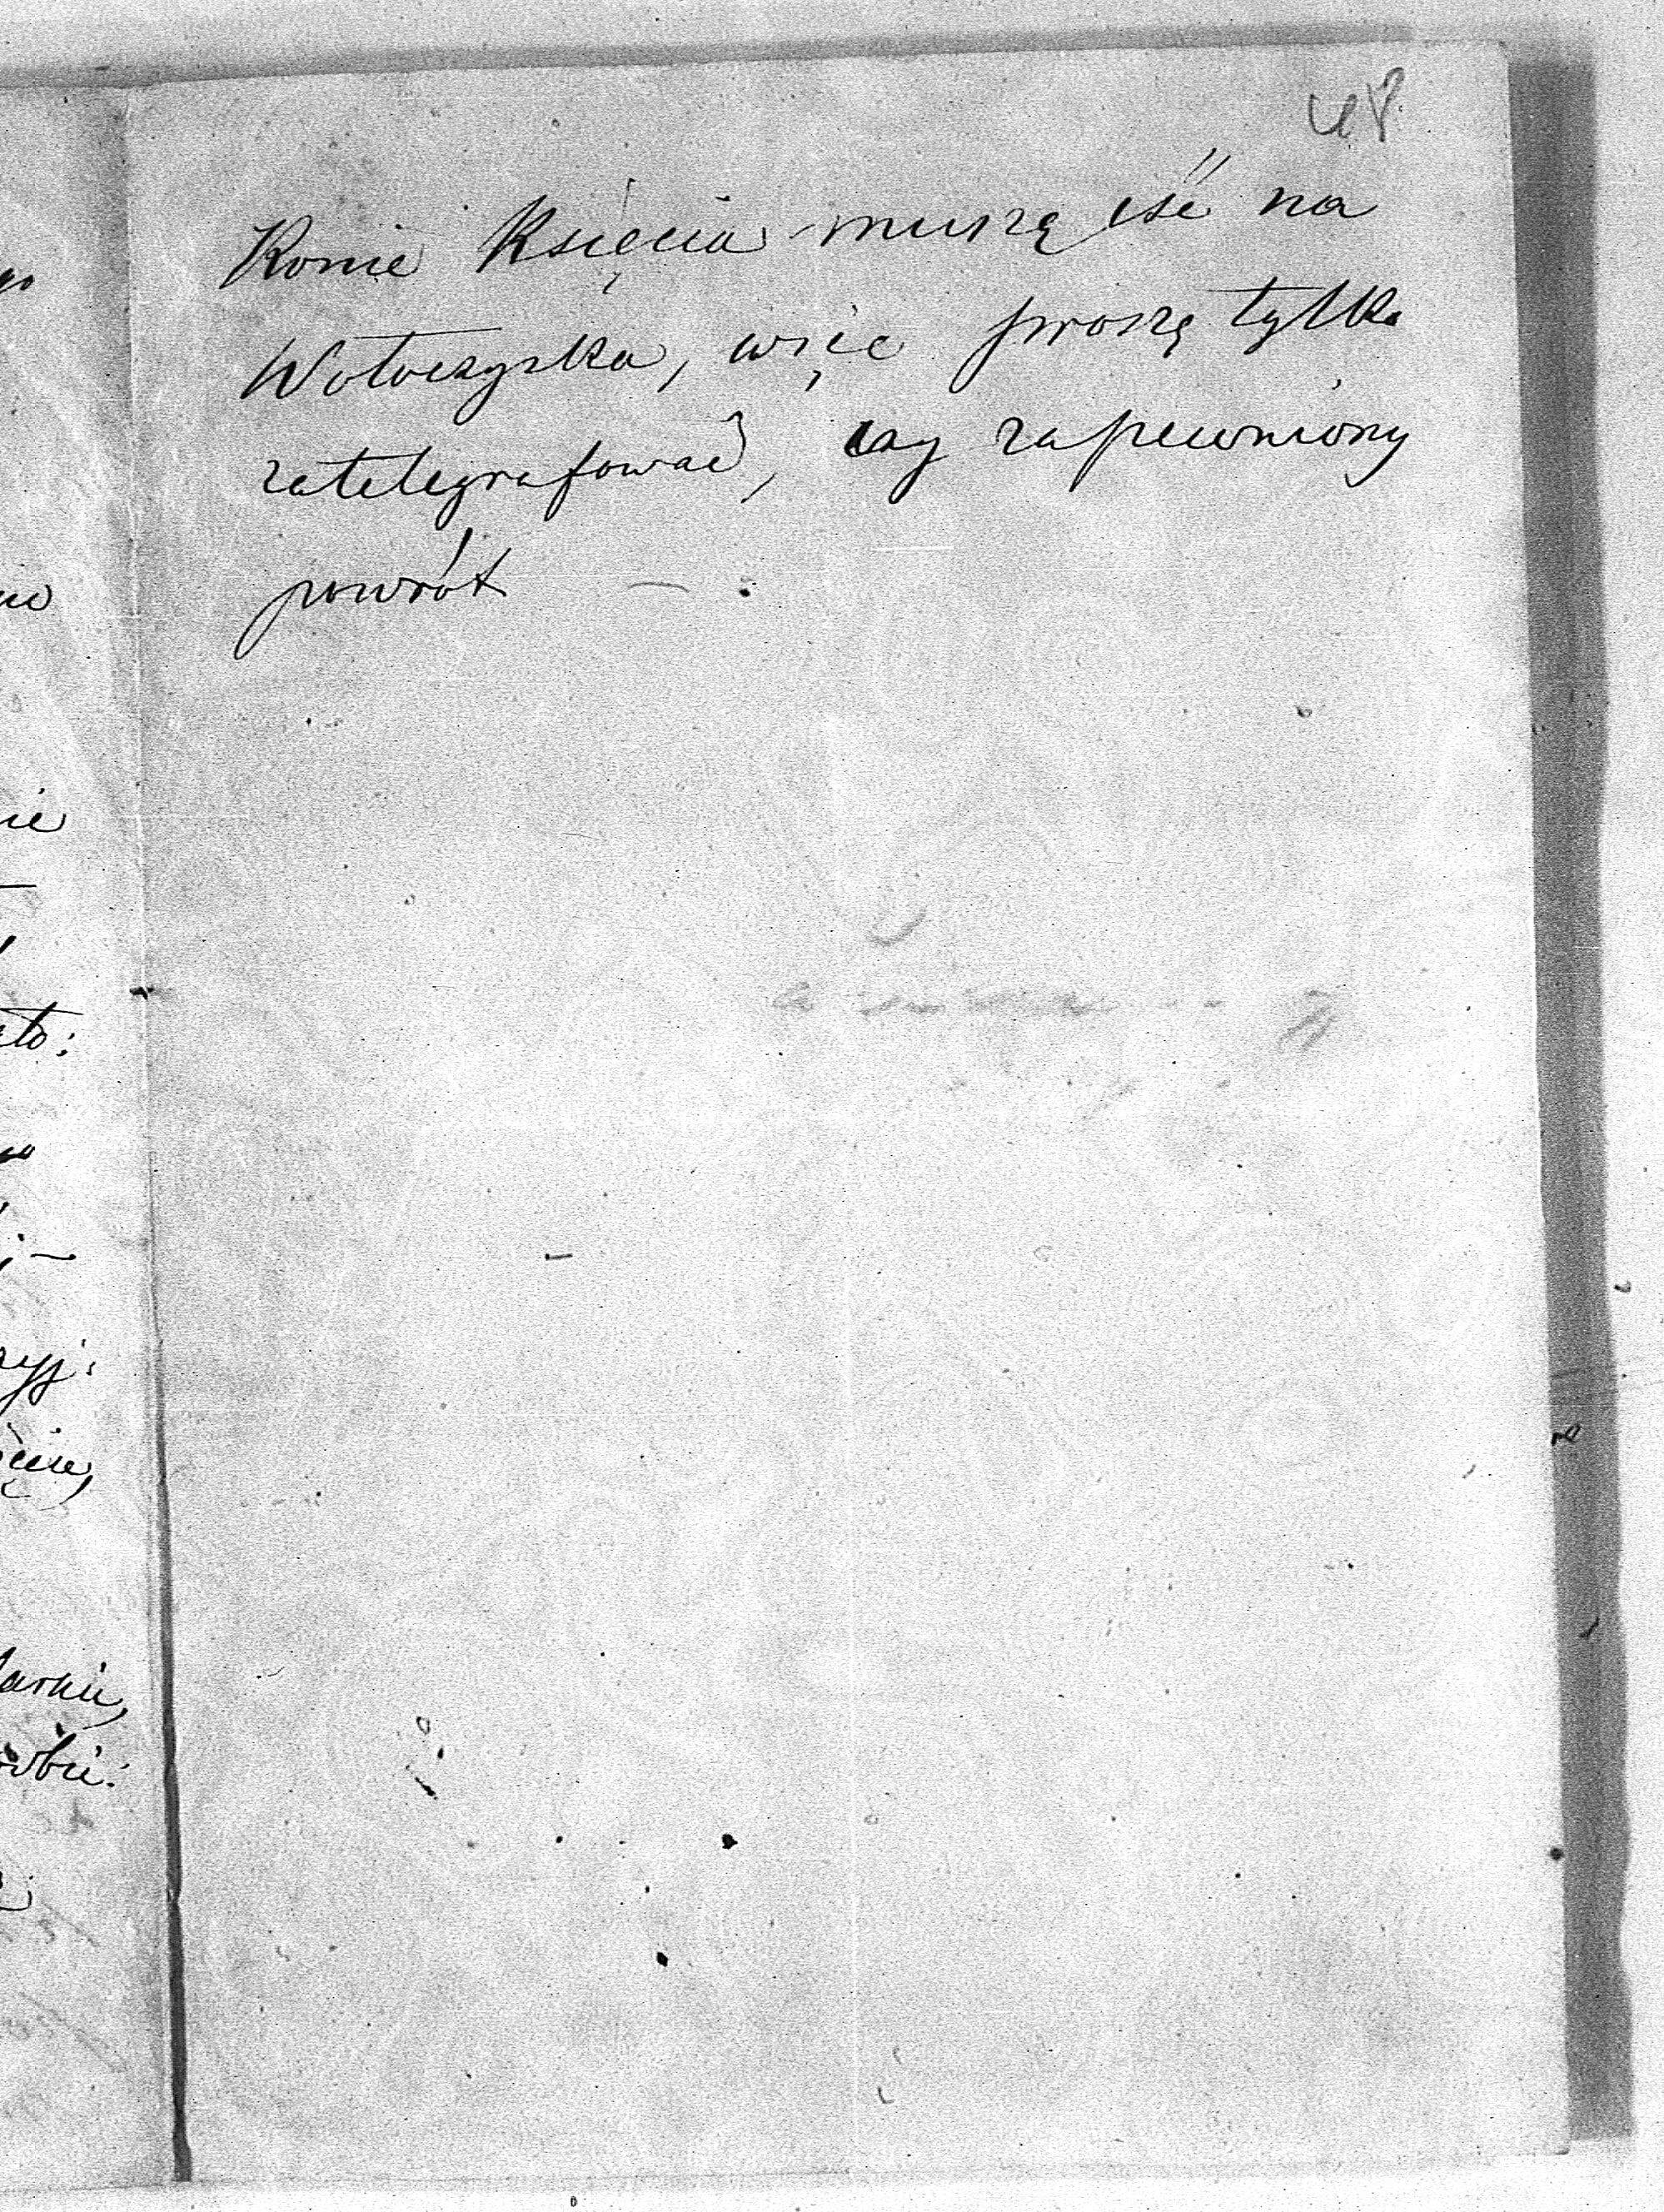 48
Konie Księcia muszę iść na
Wołoczyska, więc proszę tylko
zatelegrafować, czy zapewniony
powrót — .